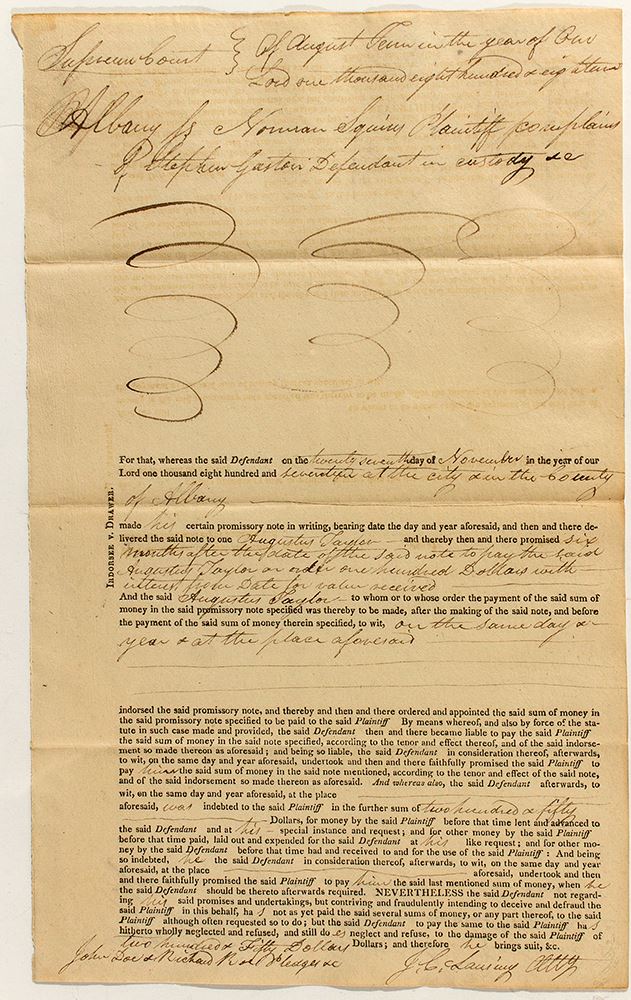 Supreme Court } Of August Term in the year of Our
Lord one thousand eight hundred & eighteen
Albany ss Norman Squires Plaintiff complains
of Stephen Gaston Defendant in custody &c
INDORSEE V. DRAWER.
For that, whereas the said Defendant on the twenty seventh day of November in the year of our
Lord one thousand eight hundred and seventeen at the city & in the County
of Albany
made his certain promissory note in writing, bearing date the day and year aforesaid, and then and there de-
livered the said note to one Augustus Taylor and thereby then and there promised six
months after the date of the said note to pay the said
Augustus Taylor or order one hundred Dollars with
interest from date for value received
And the said Augustus Taylor to whom or to whose order the payment of the said sum of
money in the said promissory note specified was thereby to be made, after the making of the said note, and before
the payment of the said sum of money therein specified, to wit, on the same day &
year & at the place aforesaid
indorsed the said promissory note, and thereby and then and there ordered and appointed the said sum of money in
the said promissory note specified to be paid to the said Plaintiff By means whereof, and also by force of the sta-
tute in such case made and provided, the said Defendant then and there became liable to pay the said Plaintiff
the said sum of money in the said note specified, according to the tenor and effect thereof, and of the said indorse-
ment so made thereon as aforesaid; and being so liable, the said Defendant in consideration thereof, afterwards,
to wit, on the same day and year aforesaid, undertook and then and there faithfully promised the said Plaintiff to
pay him the said sum of money in the said note mentioned, according to the tenor and effect of the said note,
and of the said indorsement so made thereon as aforesaid. And whereas also, the said Defendant afterwards, to
wit, on the same day and year aforesaid, at the place
aforesaid, was indebted to the said Plaintiff in the further sum of two hundred & fifty
Dollars, for money by the said Plaintiff before that time lent and advanced to
the said Defendant and at his special instance and request; and for other money by the said Plaintiff
before that time paid, laid out and expended for the said Defendant at his like request; and for other mo-
ney by the said Defendant before that time had and received to and for the use of the said Plaintiff: And being
so indebted, he the said Defendant in consideration thereof, afterwards, to wit, on the same day and year
aforesaid, at the place aforesaid, undertook and then
and there faithfully promised the said Plaintiff to pay him the said last mentioned sum of money, when he
the said Defendant should be thereto afterwards required. NEVERTHELESS the said Defendant not regard-
ing his said promises and undertakings, but contriving and fraudulently intending to deceive and defraud the
said Plaintiff in this behalf, has not as yet paid the said several sums of money, or any part thereof, to the said
Plaintiff although often requested so to do; but the said Defendant to pay the same to the said Plaintiff has
hitherto wholly neglected and refused, and still does neglect and refuse, to the damage of the said Plaintiff of
two hundred & Fifty Dollars Dollars; and therefore he brings suit, &c.
John Doe & Richard Roe Pledges &c J. C. Lansing Atty